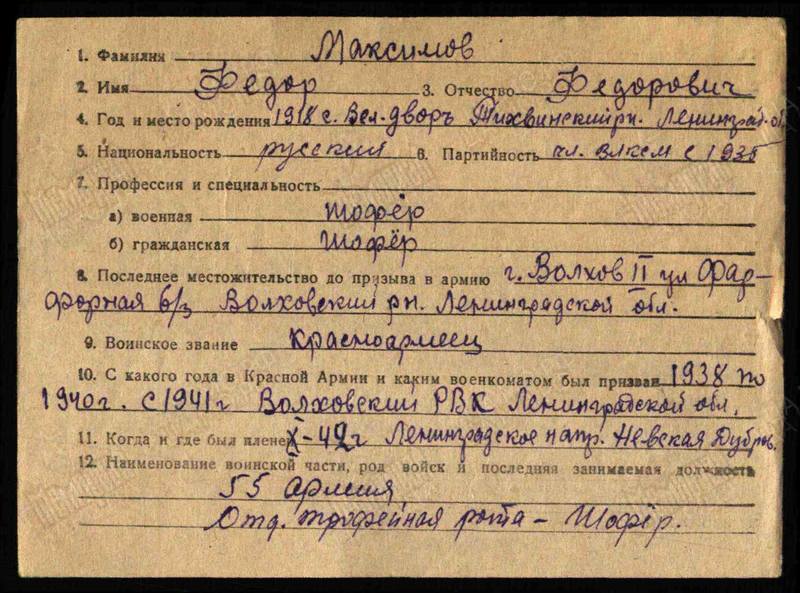 1. Фамилия Максимов
2. Имя Федор 3. Отчество Федорович
4. Год и место рождения 1918 с. Вел-дворъ Тихвинский рн. Ленинград. об
5. Национальность русский 6. Партийность чл. ВЛКСМ с 1935
7. Профессия и специальность
а) военная шофёр
б) гражданская шофёр
8. Последнее местожительство до призыва в армию г. Волхов II ул Фар-
форная б/з Волховский рн. Ленинградской обл.
9. Воинское звание красноармеец
10. С какого года в Красной Армии и каким военкоматом был призван 1938 по
1940г. с 1941г Волховский РВК Ленинградской обл.
11. Когда и где был пленен X-42г Ленинградское напр. Невская Дубров.
12. Наименование воинской части, род войск и последняя занимаемая должность
55 армия
Отд. трофейная рота - Шофёр.